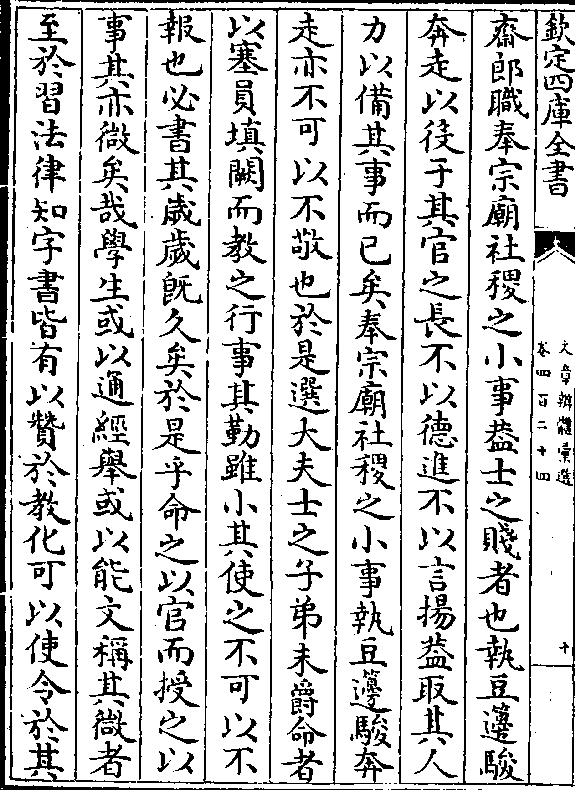 欽定四庫全書
文章辨體彙選
卷四百二十四
十
齋郎職奉宗廟社稷之小事葢士之賤者也執豆籩駿
奔走以役于其官之長不以德進不以言揚葢取其人
力以備其事而已矣奉宗廟社稷之小事執豆籩駿奔
走亦不可以不敬也於是選大夫士之子弟未爵命者
以塞員填闕而教之行事其勤雖小其使之不可以不
報也必書其歲歲旣久矣於是乎命之以官而授之以
事其亦微矣哉學生或以通經舉或以能文稱其微者
至於習法律知字書皆有以贊於教化可以使令於其